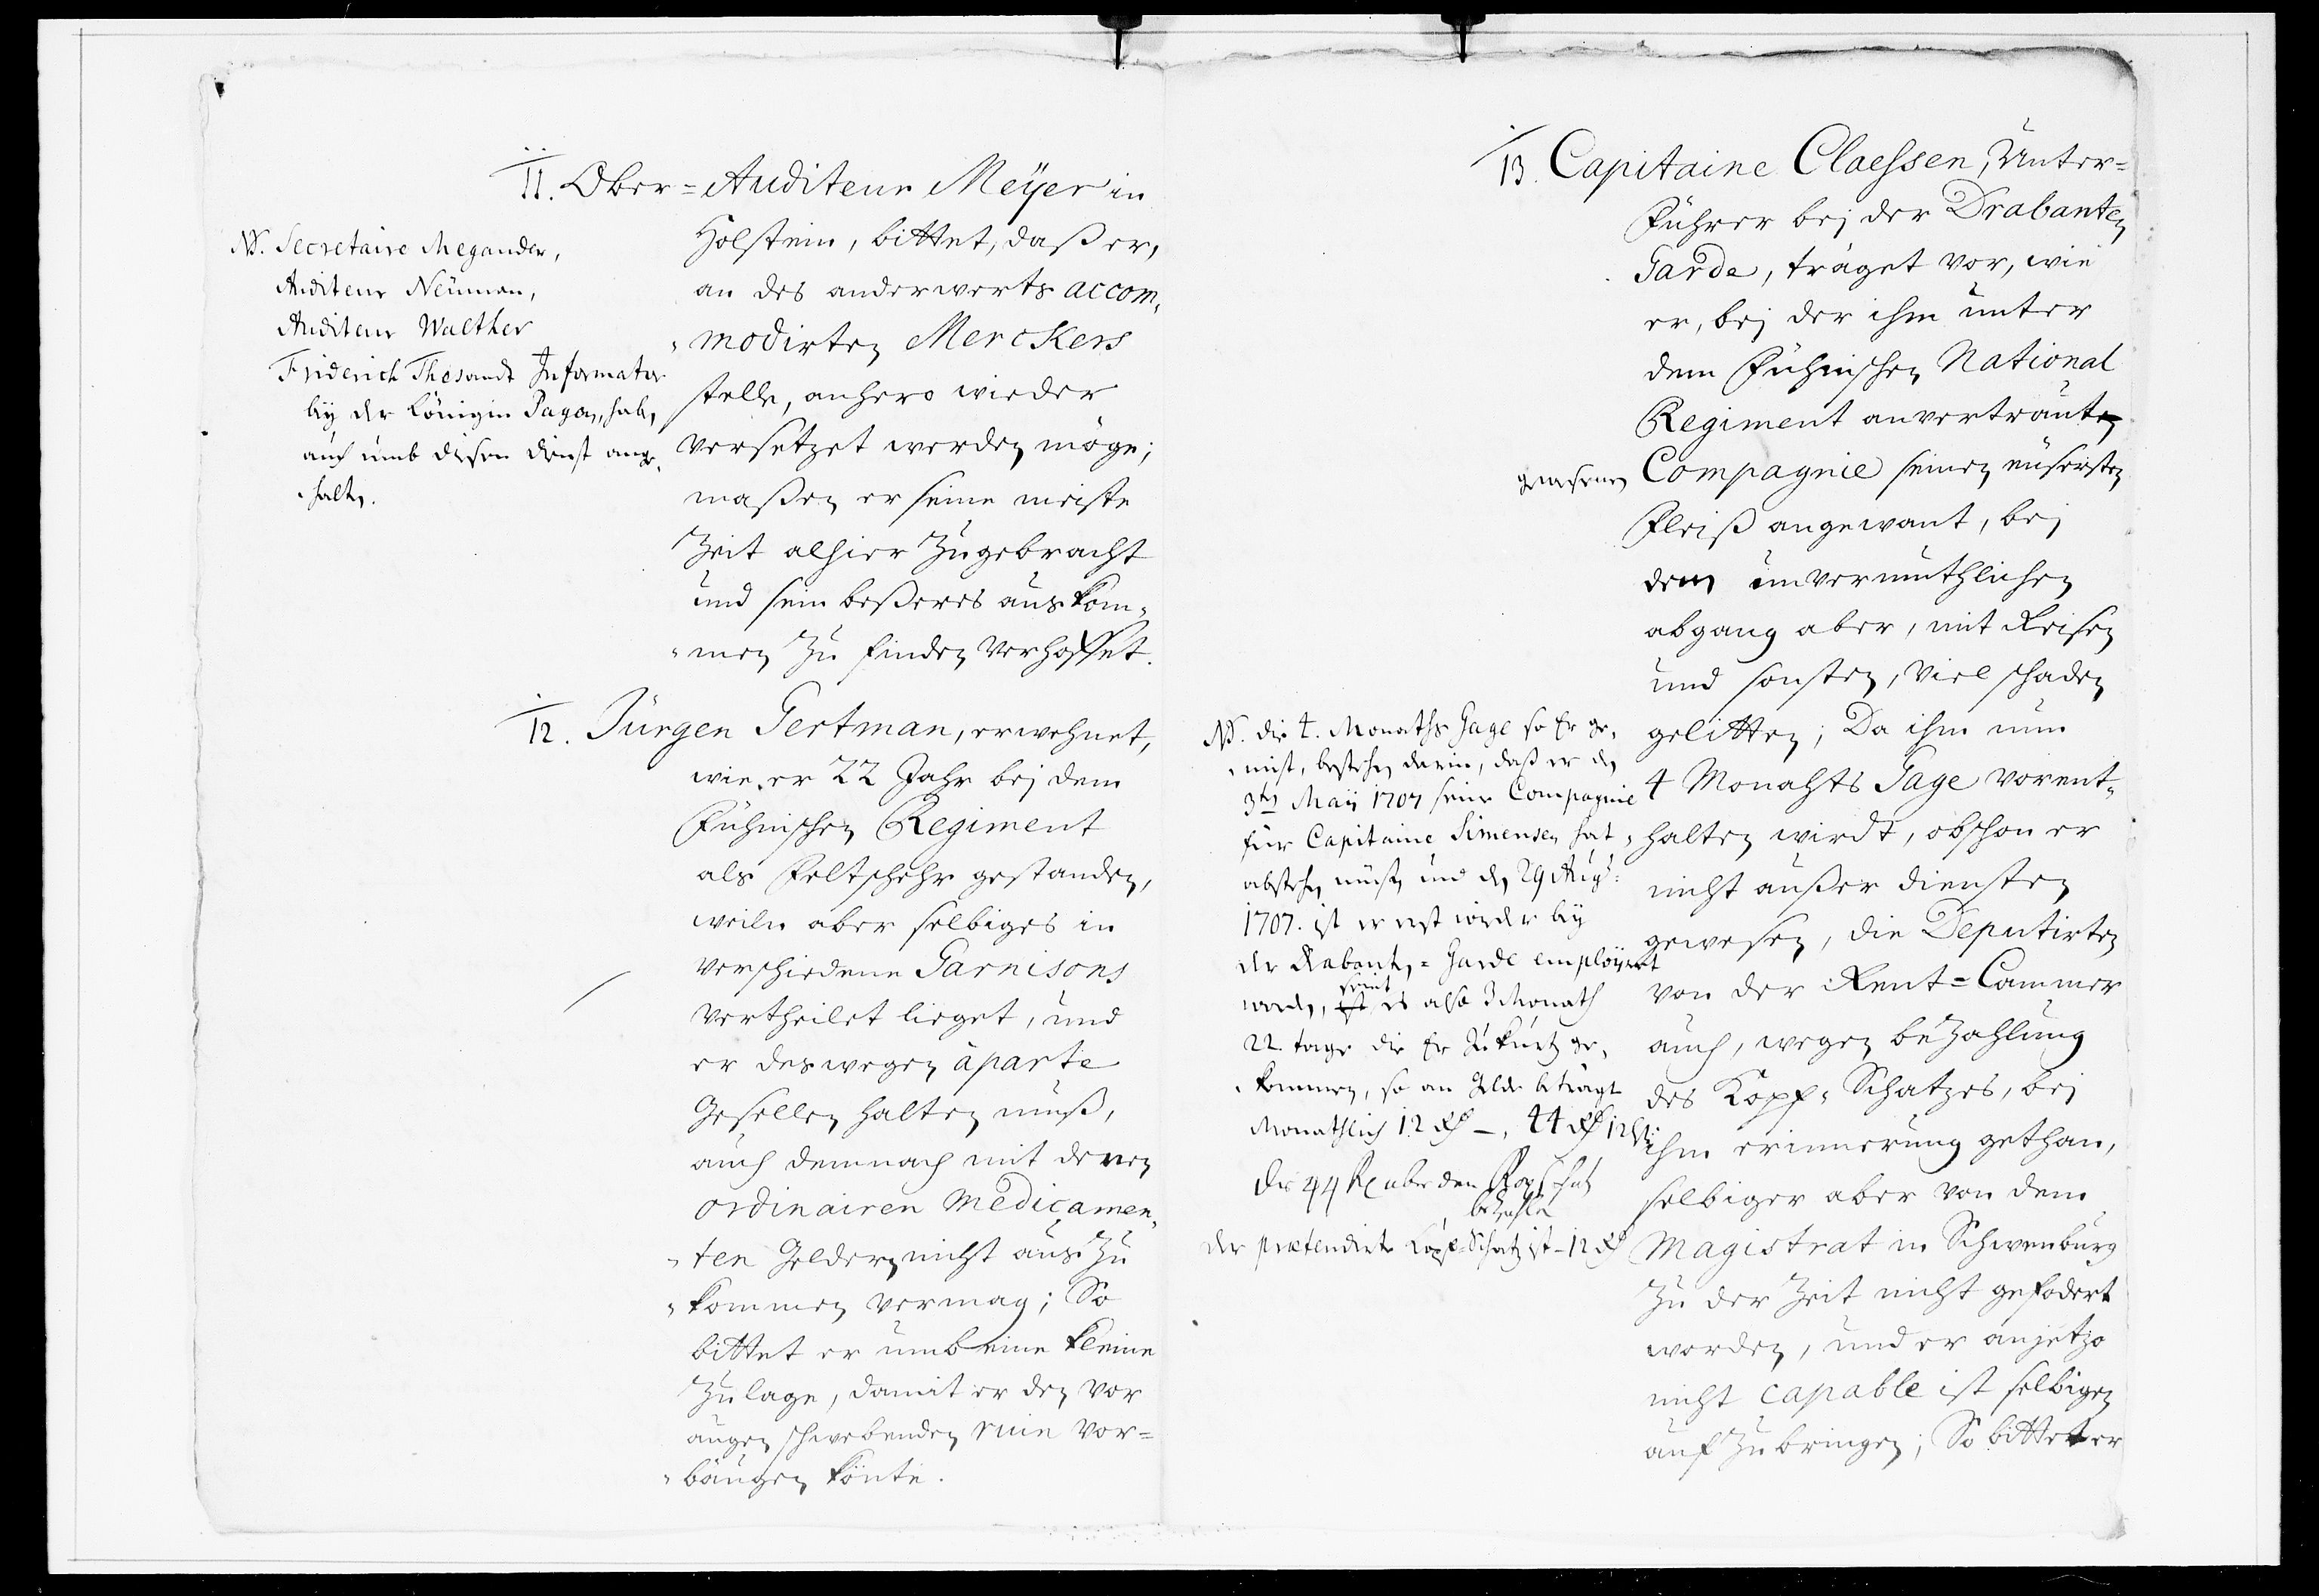 11. Ober-Auditeur Meÿer in
Holstein, bittet, daß er,
an des anderwerts accom-
modirten Merckers
stelle, anhero wieder
versetzet werden möge;
maßen er seine meiste
Zeit alhier Zugebracht
und sein beßeres auskom-
men Zu finden verhoffet.
NB. Secretaire Megander,
Auditeur Neuman,
Auditeur Walther
Friderich Thesandt Informator
beÿ der Königin Pagen, hab,
auch umb diesen dienst ange-
halten.
12. Jürgen Gertman, erwehnet,
wie er 22 Jahr bei dem
Fühnischen Regiment
als Feltschehr gestanden,
weiln aber selbiges in
verschiedene Garnisons
vertheilet lieget, und
er deswegen àparte
Gesellen halten muß,
auch demnach mit denen
ordinairen Medicamen-
ten Geldern nicht aus Zu
kommen vermag; So
bittet er umb eine kleine
Zulage, damit er den vor
augen schwebenden ruin vor-
bäugen könte.
13. Capitaine Claessen, Unter-
Führer bei der Drabanten
Garde, träget vor, wie
er, bei der ihm unter
dem Fühnischen National
Regiment anvertraut
gewesenen Compagnie seinen eusersten
Fleiß angewant, bei
dem unvermuthlichen
abgang aber, mit Reisen
und sonsten, viel schaden
gelitten; Da ihm nun
4 Monahts Gage vorent-
halten wirdt, obschon er
nicht außer diensten
gewesen, die Deputirten
von der Rent-Cammer
auch, wegen beZahlung
des Kopf-Schatzes, bei
ihm erinnerung gethan,
selbiger aber von dem
Magistrat in Schwenburg
Zu der Zeit nicht gefodert
worden, und er anjetzo
nicht capable ist selbigen
auf Zubringen; So bittet er
NB. die 4. Monaths Gage so Er ge-
mist, bestehen darin, daß er den
3ten Maÿ 1707 seine Compagnie
für Capitaine Simensen hat
abstehen müßen und den 29 Augt:
1707. ist er erst wieder beÿ
der Drabanten-Garde emploÿret
worden, seint es also 3 Monath
22. tage die Er Zu kurtz ge-
kommen, so an Gelde beträgt
Monathlich 12 Rd –, 44 Rd 12 ß:
der prætendirte Kopf-Schatz ist – 12 Rd